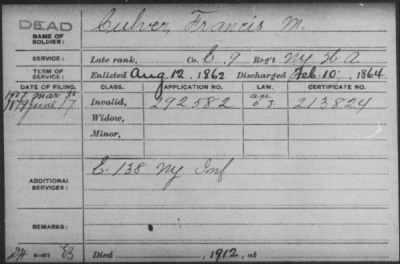 DEAD
NAME OF SOLDIER:
Culver, Francis M.
SERVICE:
Late rank, Co. E. 9 Reg't NY H A
TERM OF SERVICE:
Enlisted Aug 12, 1862 Discharged Feb. 10, 1864
DATE OF FILING. CLASS. APPLICATION NO. LAW. CERTIFICATE NO.
1907 Mar 30
1879 June 17 Invalid, 292582 213824
Widow,
Minor,
E. 138 NY Inf
ADDITIONAL SERVICES:
REMARKS:
Died , 1912, at